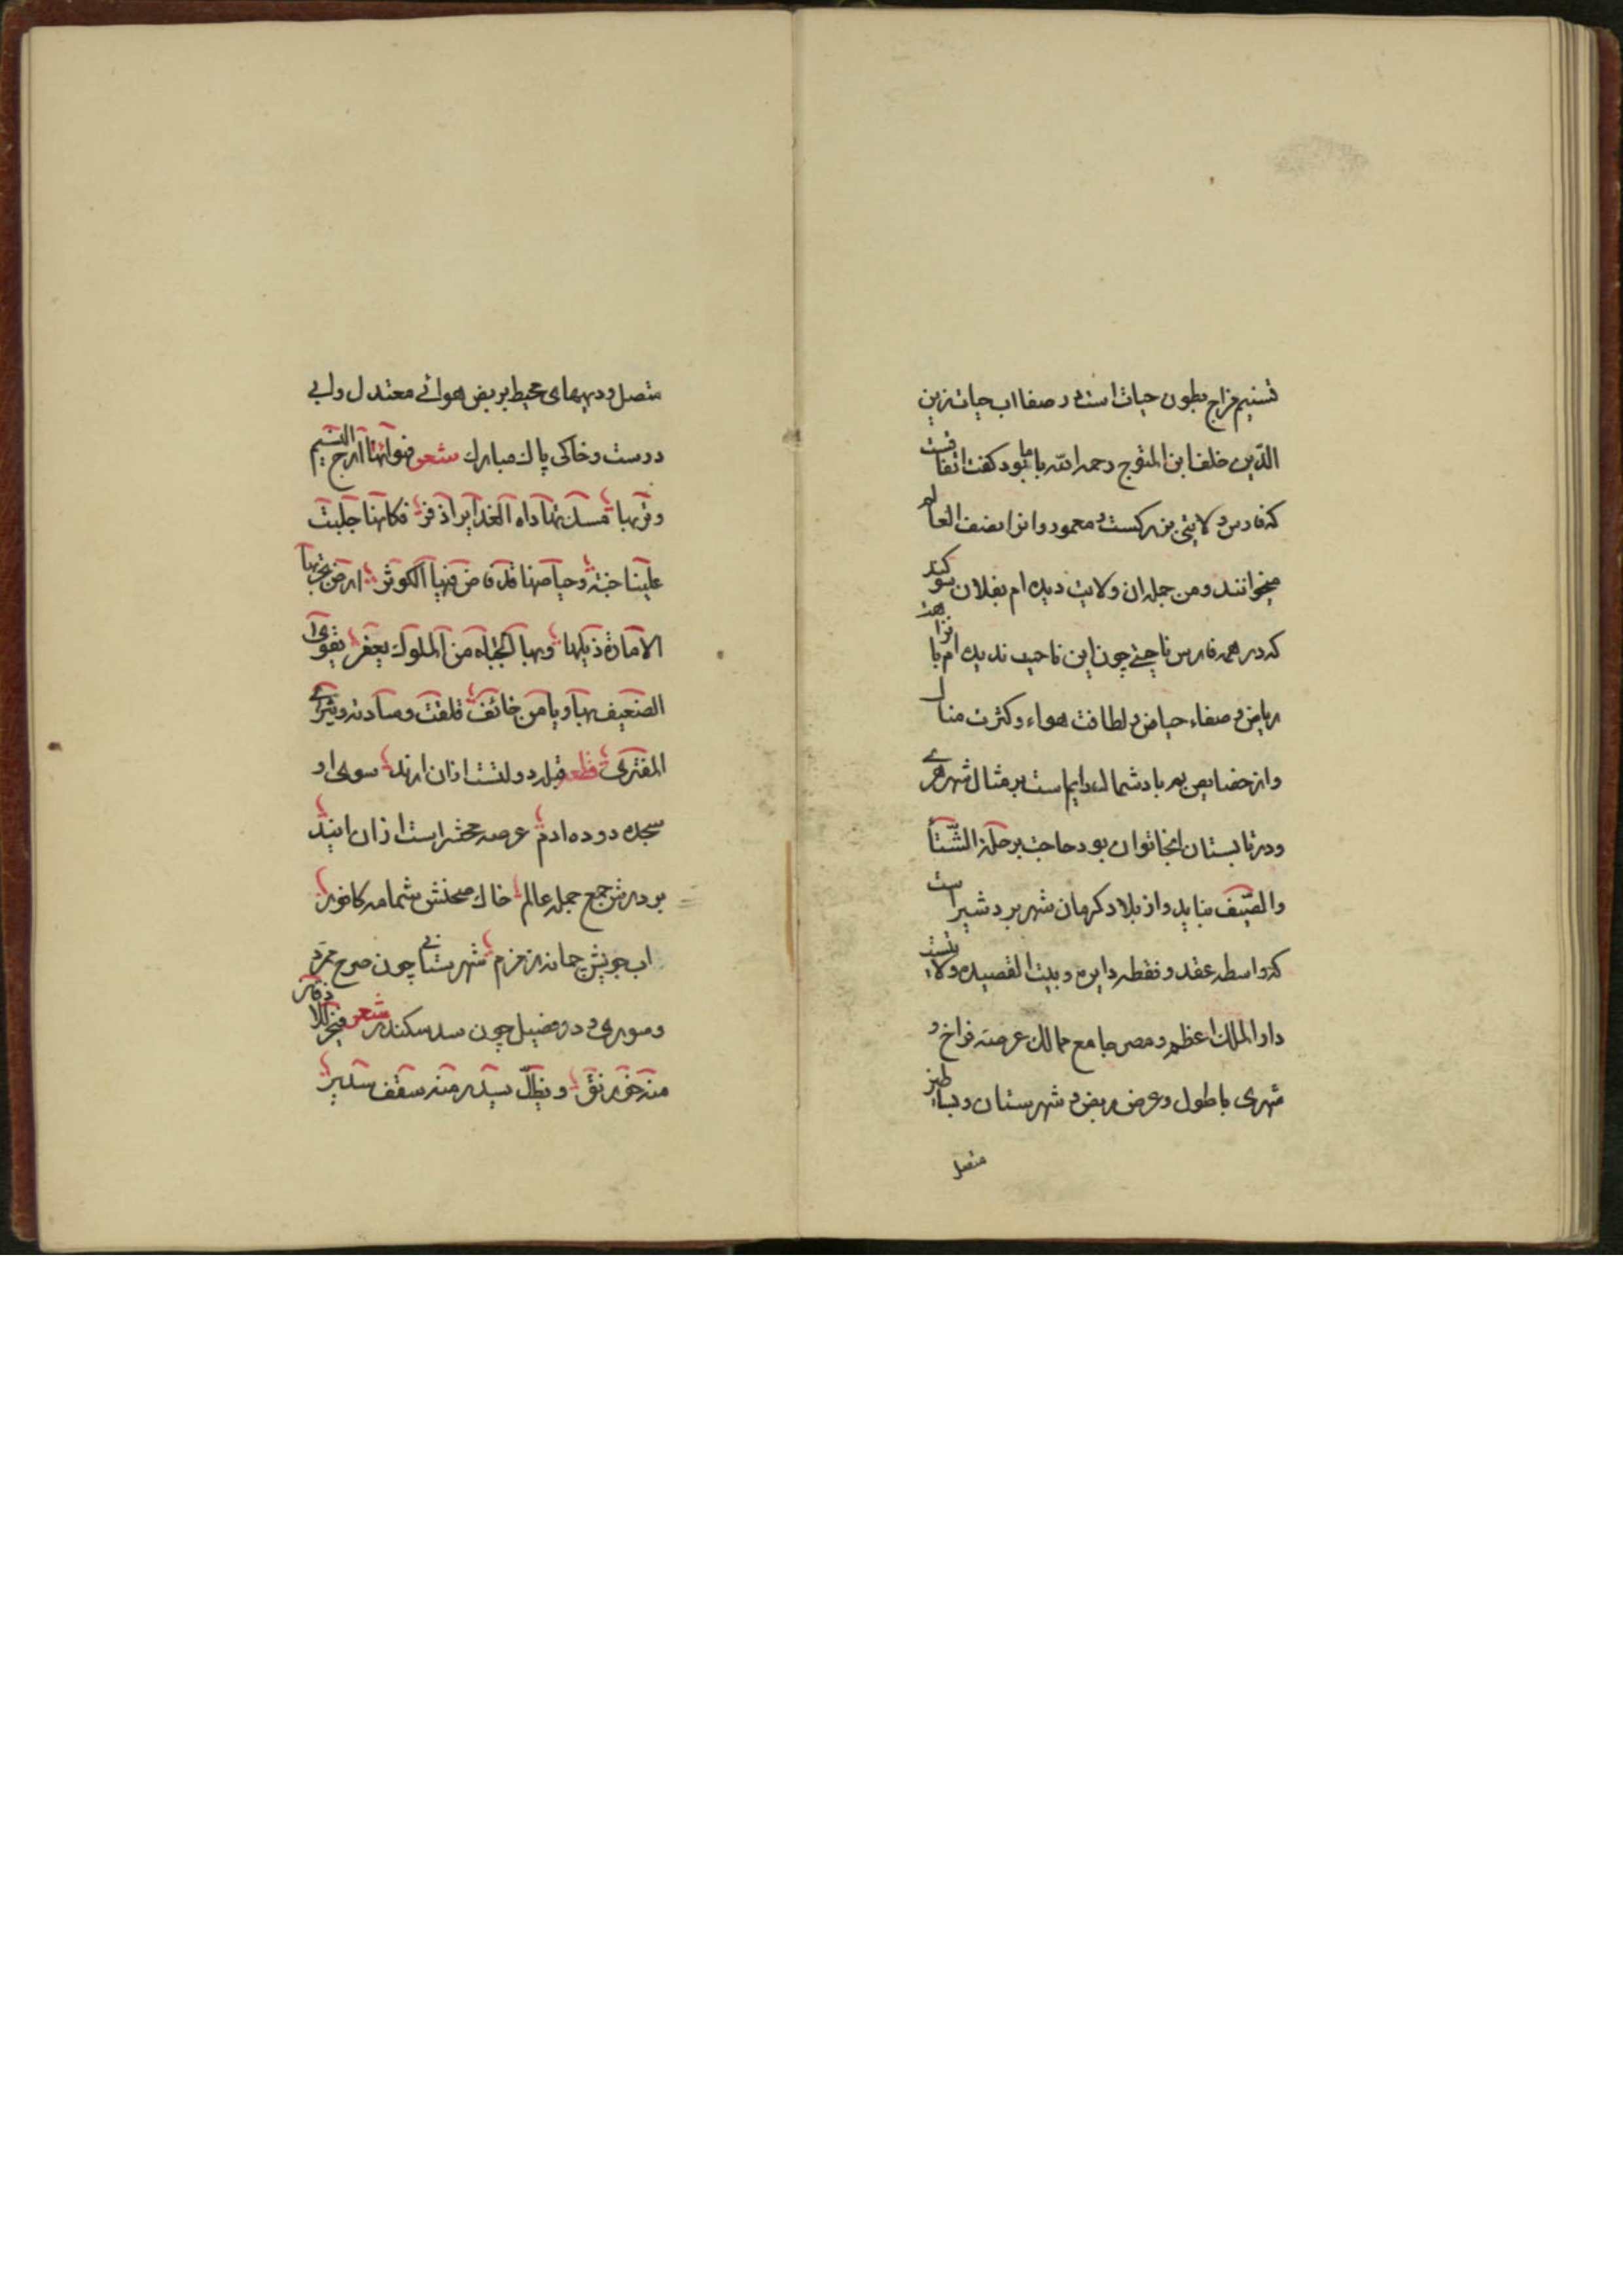 تسنیم مزاج بطون حیات است در صفا اب حیات زین
الدّین خلف ابن المتوج رحمه الله با ما بود کفت اتفاقست
که فارس ولایتی بزرکست و معمور و انرا نصف العالم
میخوانند و من جمله ان ولایت دیده ام بفلان سوکند
که در همه فارس ناحیتی چون این ناحیت ندیده ام با نزاهت
ریاض و صفاء حیاض و لطافت هواء و کثرت منال
و از خصایص بم باد شمال دایم است بر مثال شهر هری
و در تابستان انجا توان بود حاجت برحلة الشّتآ
والصّیف نیاید و از بلاد کرمان شهر بردشیر است
که واسطه عقد و نقطه دایره و بیت القصیده ولایتست
دار الملك اعظم و مصر جامع ممالك عرصه فراخ و
شهری با طول و عرض ربض و شهرستان و بساطین
متصل
متصل و دیههای محیط بربض هوائے معتدل و ابی
درست و خاکی پاك مبارك شعر فهوائها ارج النسیم
وتربها مسك تهاداه الغدایر اذفر فکانها جلبت
علینا جنة وحیاضها قد فاض فیها الکوثر ارض تجربها
الامارة ذیلها وبها الجباه من الملوك یعفر یقوی
الضعیف بها ویامن خائف قلقت وسادته ویثرے
المفتری قطعه قبله دولتست ازان ارند سوی او
سجده دوده ادم عرصه محشراست ازان ایند
بر درش جمع جمله عالم خاك صحنش شمامه کافور
اب جویش چمانه زمزم شهرستانی چون صرح ممرّد
و سوری و در و فضیل چون سد سکندر شعر
منه خورنق ویظلّ سدیر منه سقف سدیر